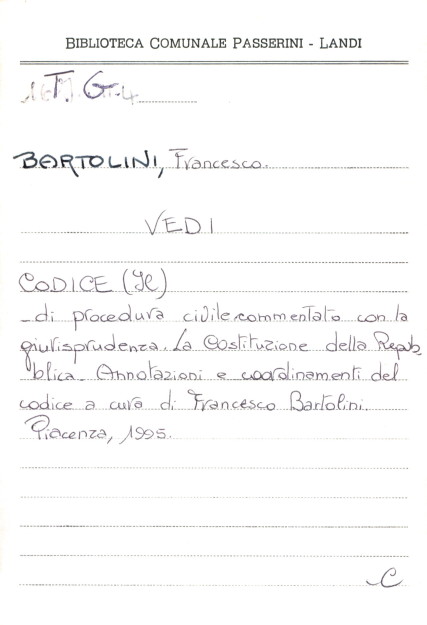 BIBLIOTECA COMUNALE PASSERINI - LANDI
T. G.
BARTOLINI, Francesco.
VEDI
CODICE (Il)
- di procedura civile commentato con la
giurisprudenza. La Costituzione della Repub-
blica. Annotazioni e coordinamenti del
codice a cura di Francesco Bartolini.
Piacenza, 1995.
C